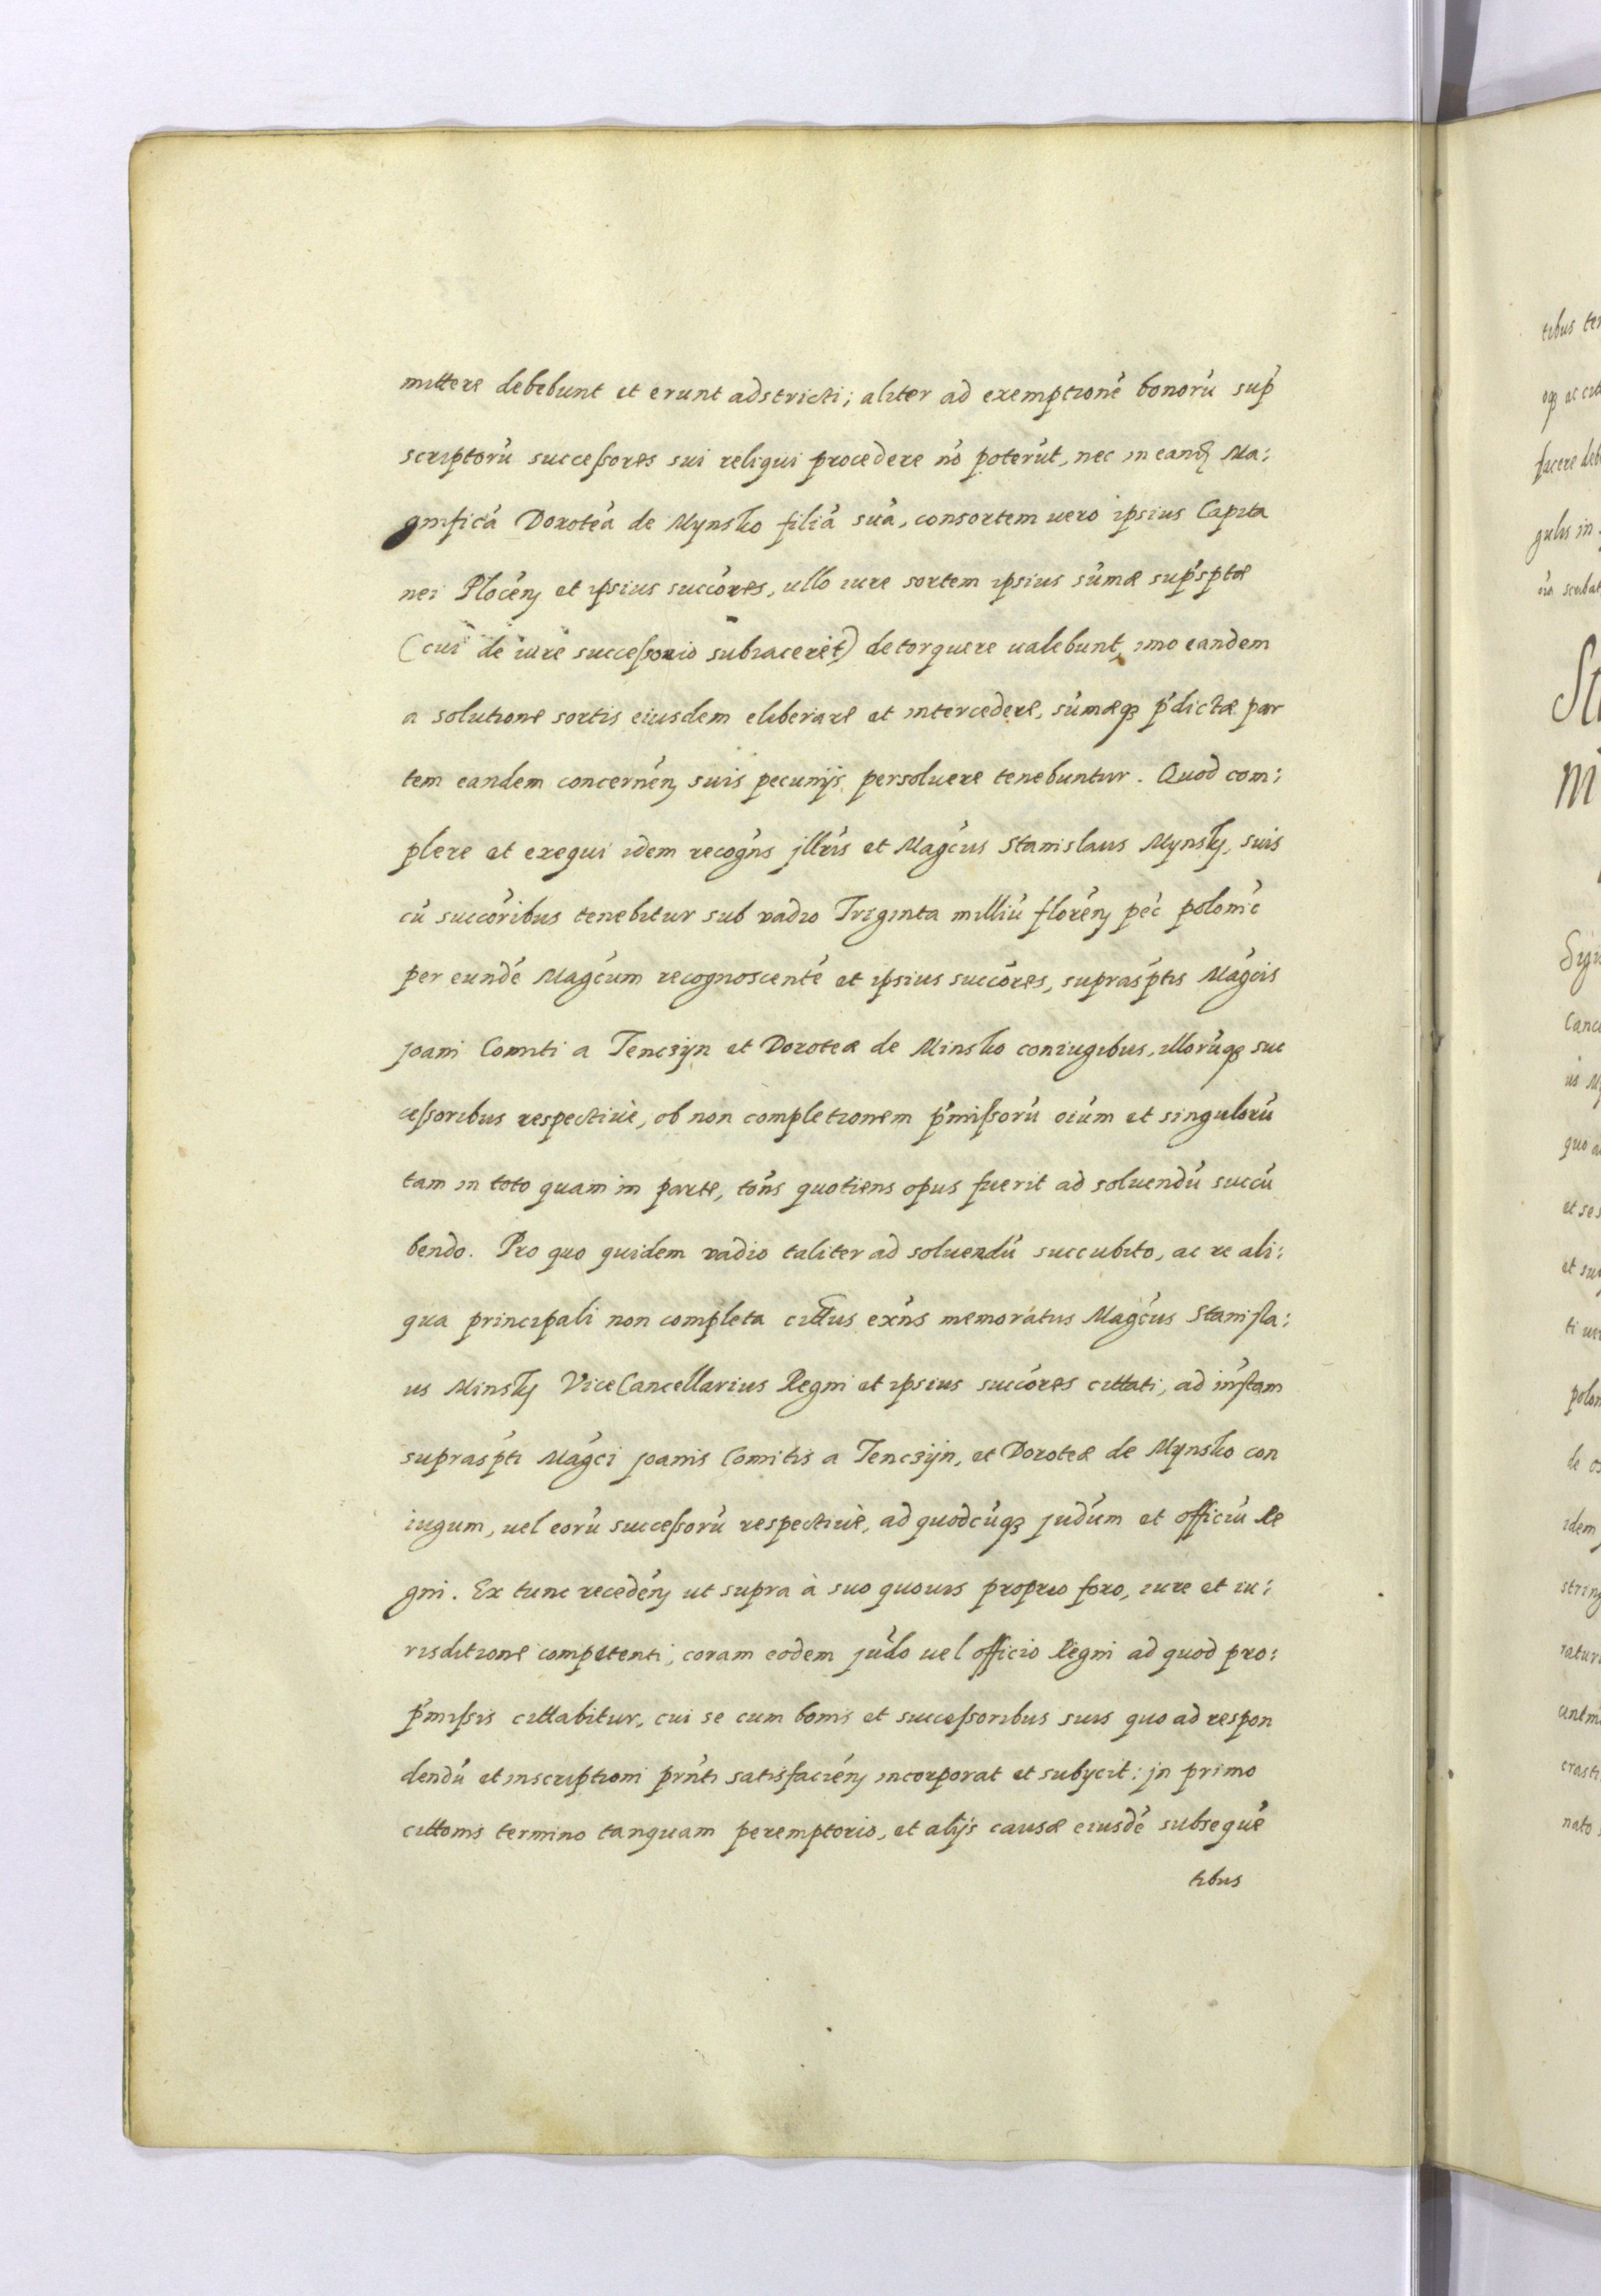 mittere debebunt et erunt adstricti; aliter ad exemptionē bonorū sup̄
scriptorū successores sui reliqui procedere nō poterūt, nec in eand Ma:
gnificā Doroteā de Mynsko filiā suā, consortem uero ipsius Capita
nei Plocēn et ipsius succōres, ullo iure sortem ipsius sūmæ sup̄sptæ
(cui de iure successorio subiaceret) detorquere ualebunt, imo eandem
a solutione sortis eiusdem eliberare et intercedere, sūmæq3 p̄dictæ par
tem eandem concernēn suis pecunijs persoluere tenebuntur. Quod com:
plere et exequi idem recogn̄s jllr̄is et Magc̄us Stanislaus Mynsky, suis
cū succōribus tenebitur sub vadio Triginta milliū florēn pēc polonīc
per eundē Magc̄um recognoscentē et ipsius succōres, supras̄ptis Magc̄is
joani Comiti a Tenczyn et Doroteæ de Minsko coniugibus, illorūq3 suc
cessoribus respectiuè, ob non completionem p̄missorū oiūm et singulorū
tam in toto quam in parte, tōns quotiens opus fuerit ad soluendū succū
bendo. Pro quo quidem vadio taliter ad soluendū succubito, ac re ali:
qua principali non completa cittus exn̄s memoratus Magc̄us Stanisla:
us Minsky ViceCancellarius Regni et ipsius succōres cittati, ad instam
supras̄pti Magc̄i joanis Comitis a Tenczyn, et Doroteæ de Mynsko con
iugum, uel eorū successorū respectiuè, ad quodcūq3 judūm et officiū Re
gni. Ex tunc recedēn ut supra à suo quouis proprio foro, iure et iu:
risditione competenti, coram eodem judō uel officio Regni ad quod pro:
p̄missis cittabitur, cui se cum bonis et successoribus suis quo ad respon
dendū et inscriptioni prn̄ti satisfaciēn incorporat et subycit: jn primo
cittonis termino tanquam peremptorio, et alijs causæ eiusdē subsequē
tibus